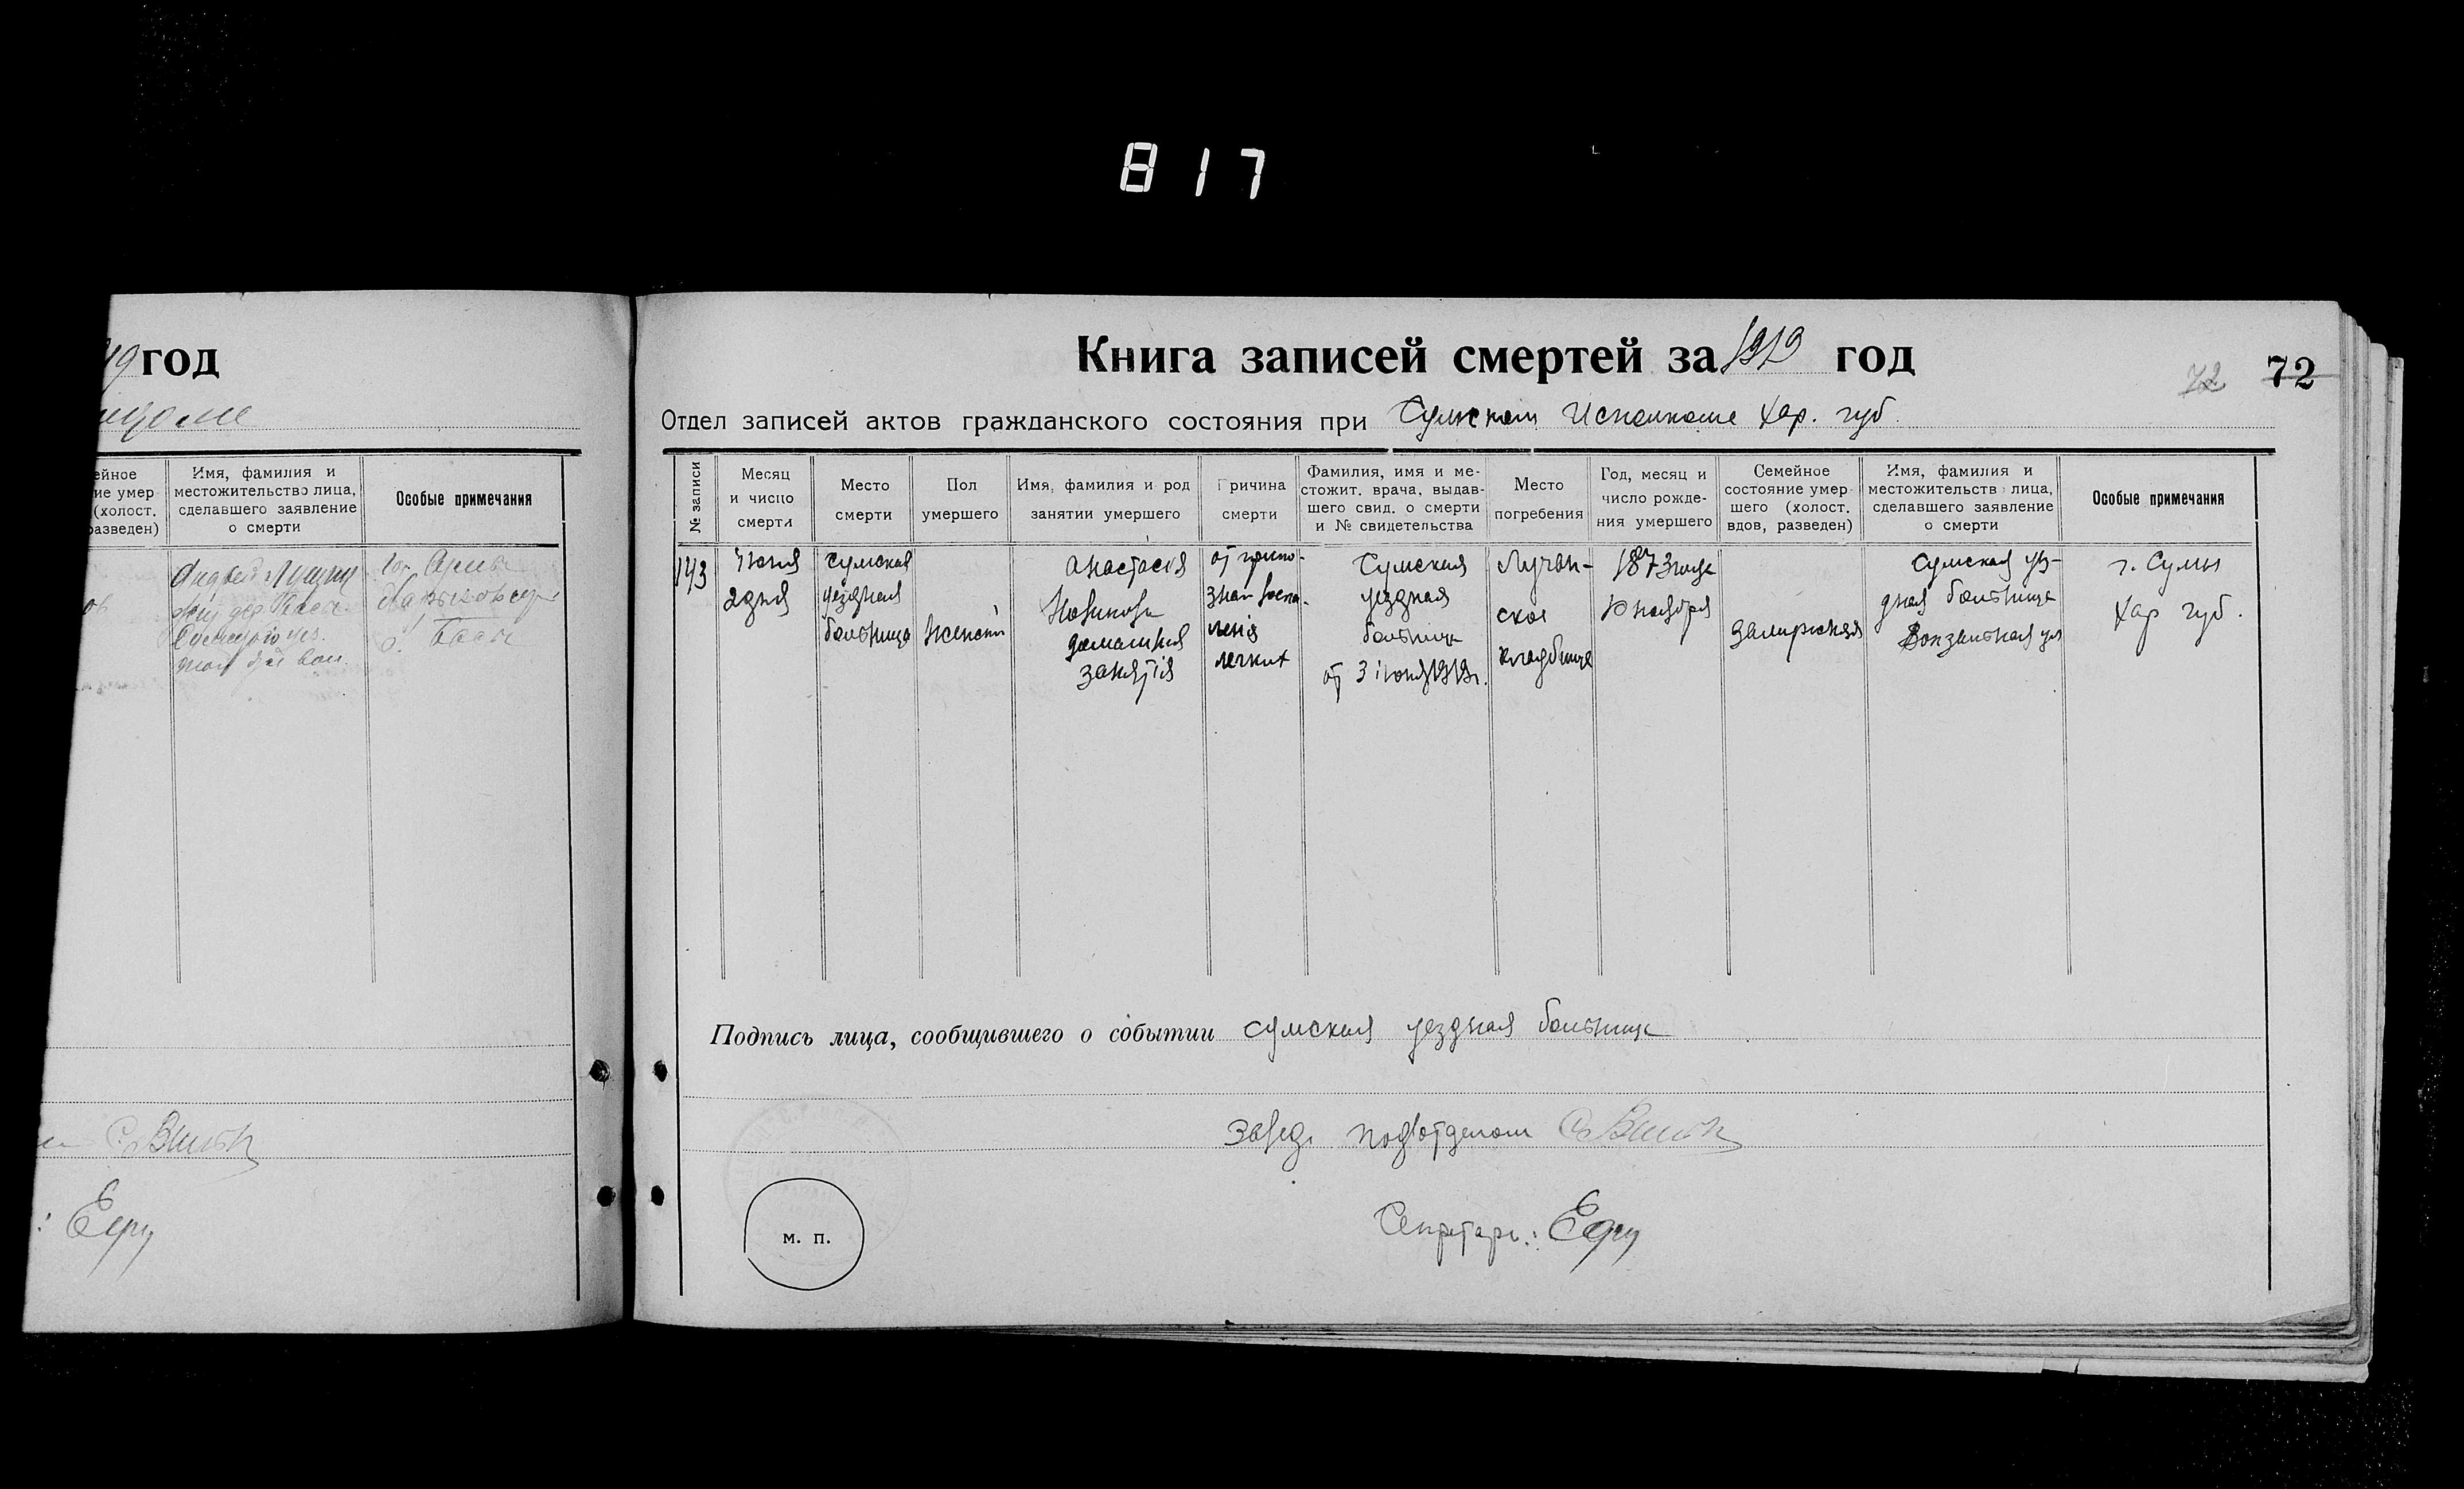 817
19 год
Имя, фамилия и
местожительство лица,
сделавшего заявление
о смерти
Особые примечания
ейное
ие умер
(холост.
разведен)
Андрей
гор. Сумы
Книга записей смертей за 1919 год
72 72
Отдел записей актов гражданского состояния при Сумском Исполкоме Хар. губ.
№ записи
Месяц
и число
смерти
Место
смерти
Пол
умершего
Имя, фамилия и род
занятии умершего
Причина
смерти
Фамилия, имя и ме-
стожит. врача, выдав-
шего свид. о смерти
и № свидетельства
Место
погребения
Год, месяц и
число рожде-
ния умершего
Семейное
состояние умер-
шего (холост.
вдов, разведен)
Имя, фамилия и
местожительств лица,
сделавшего заявление
о смерти
Особые примечания
143
Июня
2 дня
Сумская
уездная
больница
женский
Анастасія
Новикова
домашнія
занятія
от крупо-
зной воспа-
ленія
легких
Сумская
уездная
больница
от 3 іюня 1919 г.
Лучан-
ское
кладбище
1873 года
10 ноября
замужняя
Сумская уез-
дная больница
Вокзальная ул
г. Сумы
Хар губ.
Подпись лица, сообщившего о событии Сумская уездная больница
Завед. подотделом
Секретарь:
м. п.